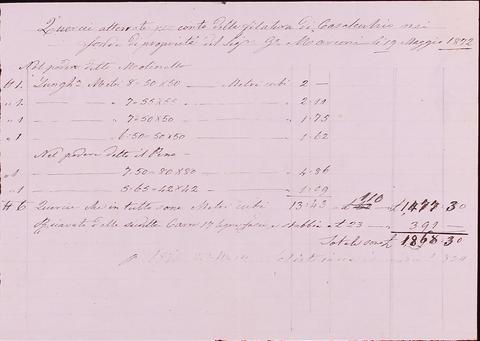 Quercie atterrate per conto della filatura di Casalecchio nei
fondi di proprietà del Sig. Gᵉ Marconi li 19 Maggio 1872
Nel podere detto Molinello
N 1. Lungha Metri 8-50x50 — Metri cubi 2 —
" 1 — " — 7-55x55 — " — 2-11
" 1 — " — 7-50x50 — " — 1-75
" 1 — " — 6-50-50x50 — " — 1-62
Nel podere detto il Pino —
" 1 — 7.50-80x80 — 4-86
" 1 — 5-65-42x42 — 1-09
N 6 Quercie che in tutto sono Metri cubi 13-43 110 1,477.30
delle suddette Carra 17 e sabbia a £ 23 — " 391 —
Totale 1868.30